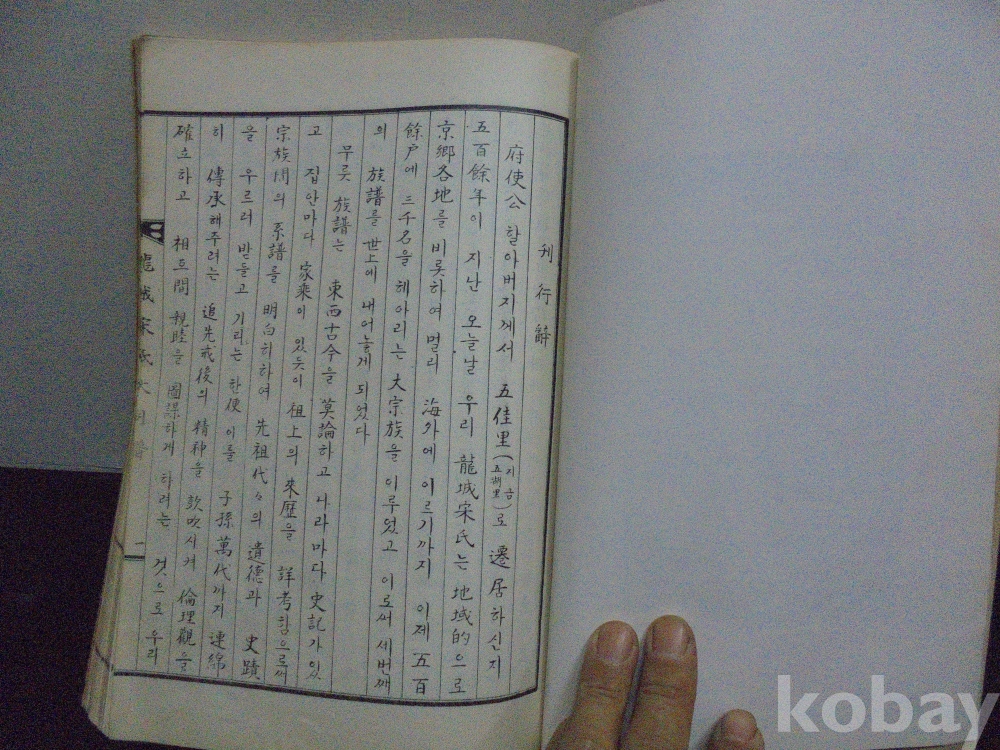 刊行辭
府使公 할아버지께서 五佳里(지금 五湖里)로 遷居하신지
五百餘年이 지난 오늘날 우리 龍城宋氏는 地域的으로
京鄕各地를 비롯하여 멀리 海外에 이르기까지 이제 五百
餘戶에 三千名을 헤아리는 大宗族을 이루었고 이로써 세번째
의 族譜를 世上에 내어놓게 되었다
무릇 族譜는 東西古今을 莫論하고 나라마다 史記가 있
고 집안마다 家乘이 있듯이 祖上의 來歷을 詳考함으로써
宗族間의 系譜를 明白히하여 先祖代々의 遺德과 史蹟
을 우르러 받들고 기리는 한便 이를 子孫萬代까지 連綿
히 傳承해주려는 追先戒後의 精神을 鼓吹시켜 倫理觀을
確立하고 相互間 親睦을 圖謀하게 하려는 것으로 우리
龍城宋氏大同譜 一
kobay